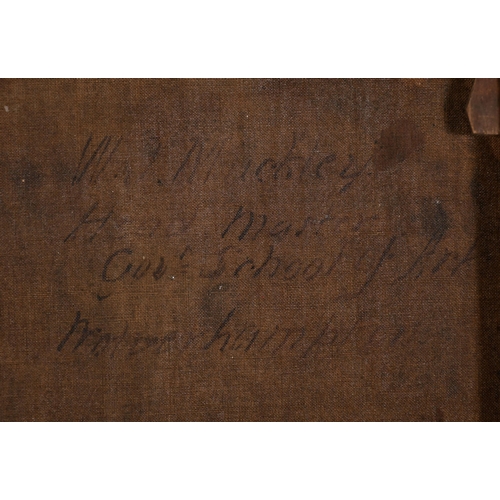 Wm. Mackney
Head Master
Govt. School of Art
Wolverhampton